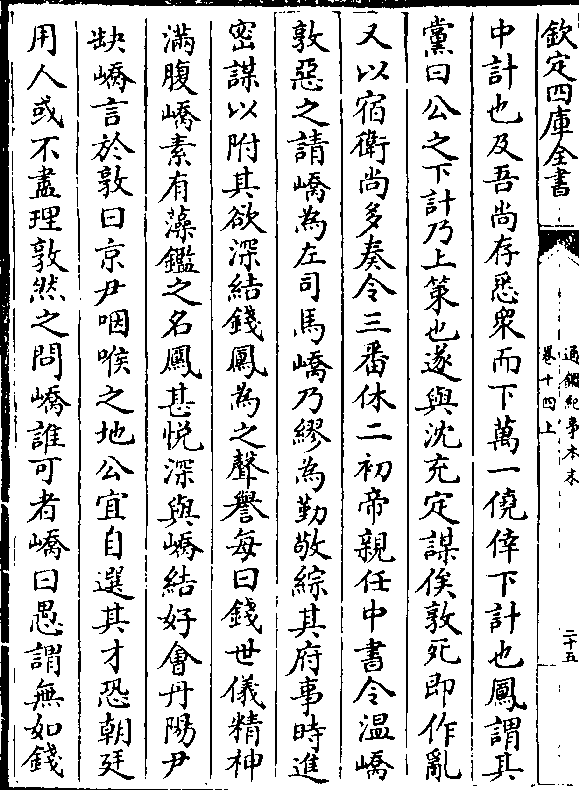 欽定四庫全書
通鑑紀事本末
卷十四上
二十五
中計也及吾尚存悉衆而下萬一僥倖下計也鳳謂其
黨曰公之下計乃上策也遂與沈充定謀俟敦死即作亂
又以宿衛尚多奏令三番休二初帝親任中書令温嶠
敦惡之請嶠為左司馬嶠乃繆為勤敬綜其府事時進
密謀以附其欲深結錢鳳為之聲譽每曰錢世儀精神
滿腹嶠素有藻鑑之名鳳甚悦深與嶠結好會丹陽尹
缺嶠言於敦曰京尹咽喉之地公宜自選其才恐朝廷
用人或不盡理敦然之問嶠誰可者嶠曰愚謂無如錢